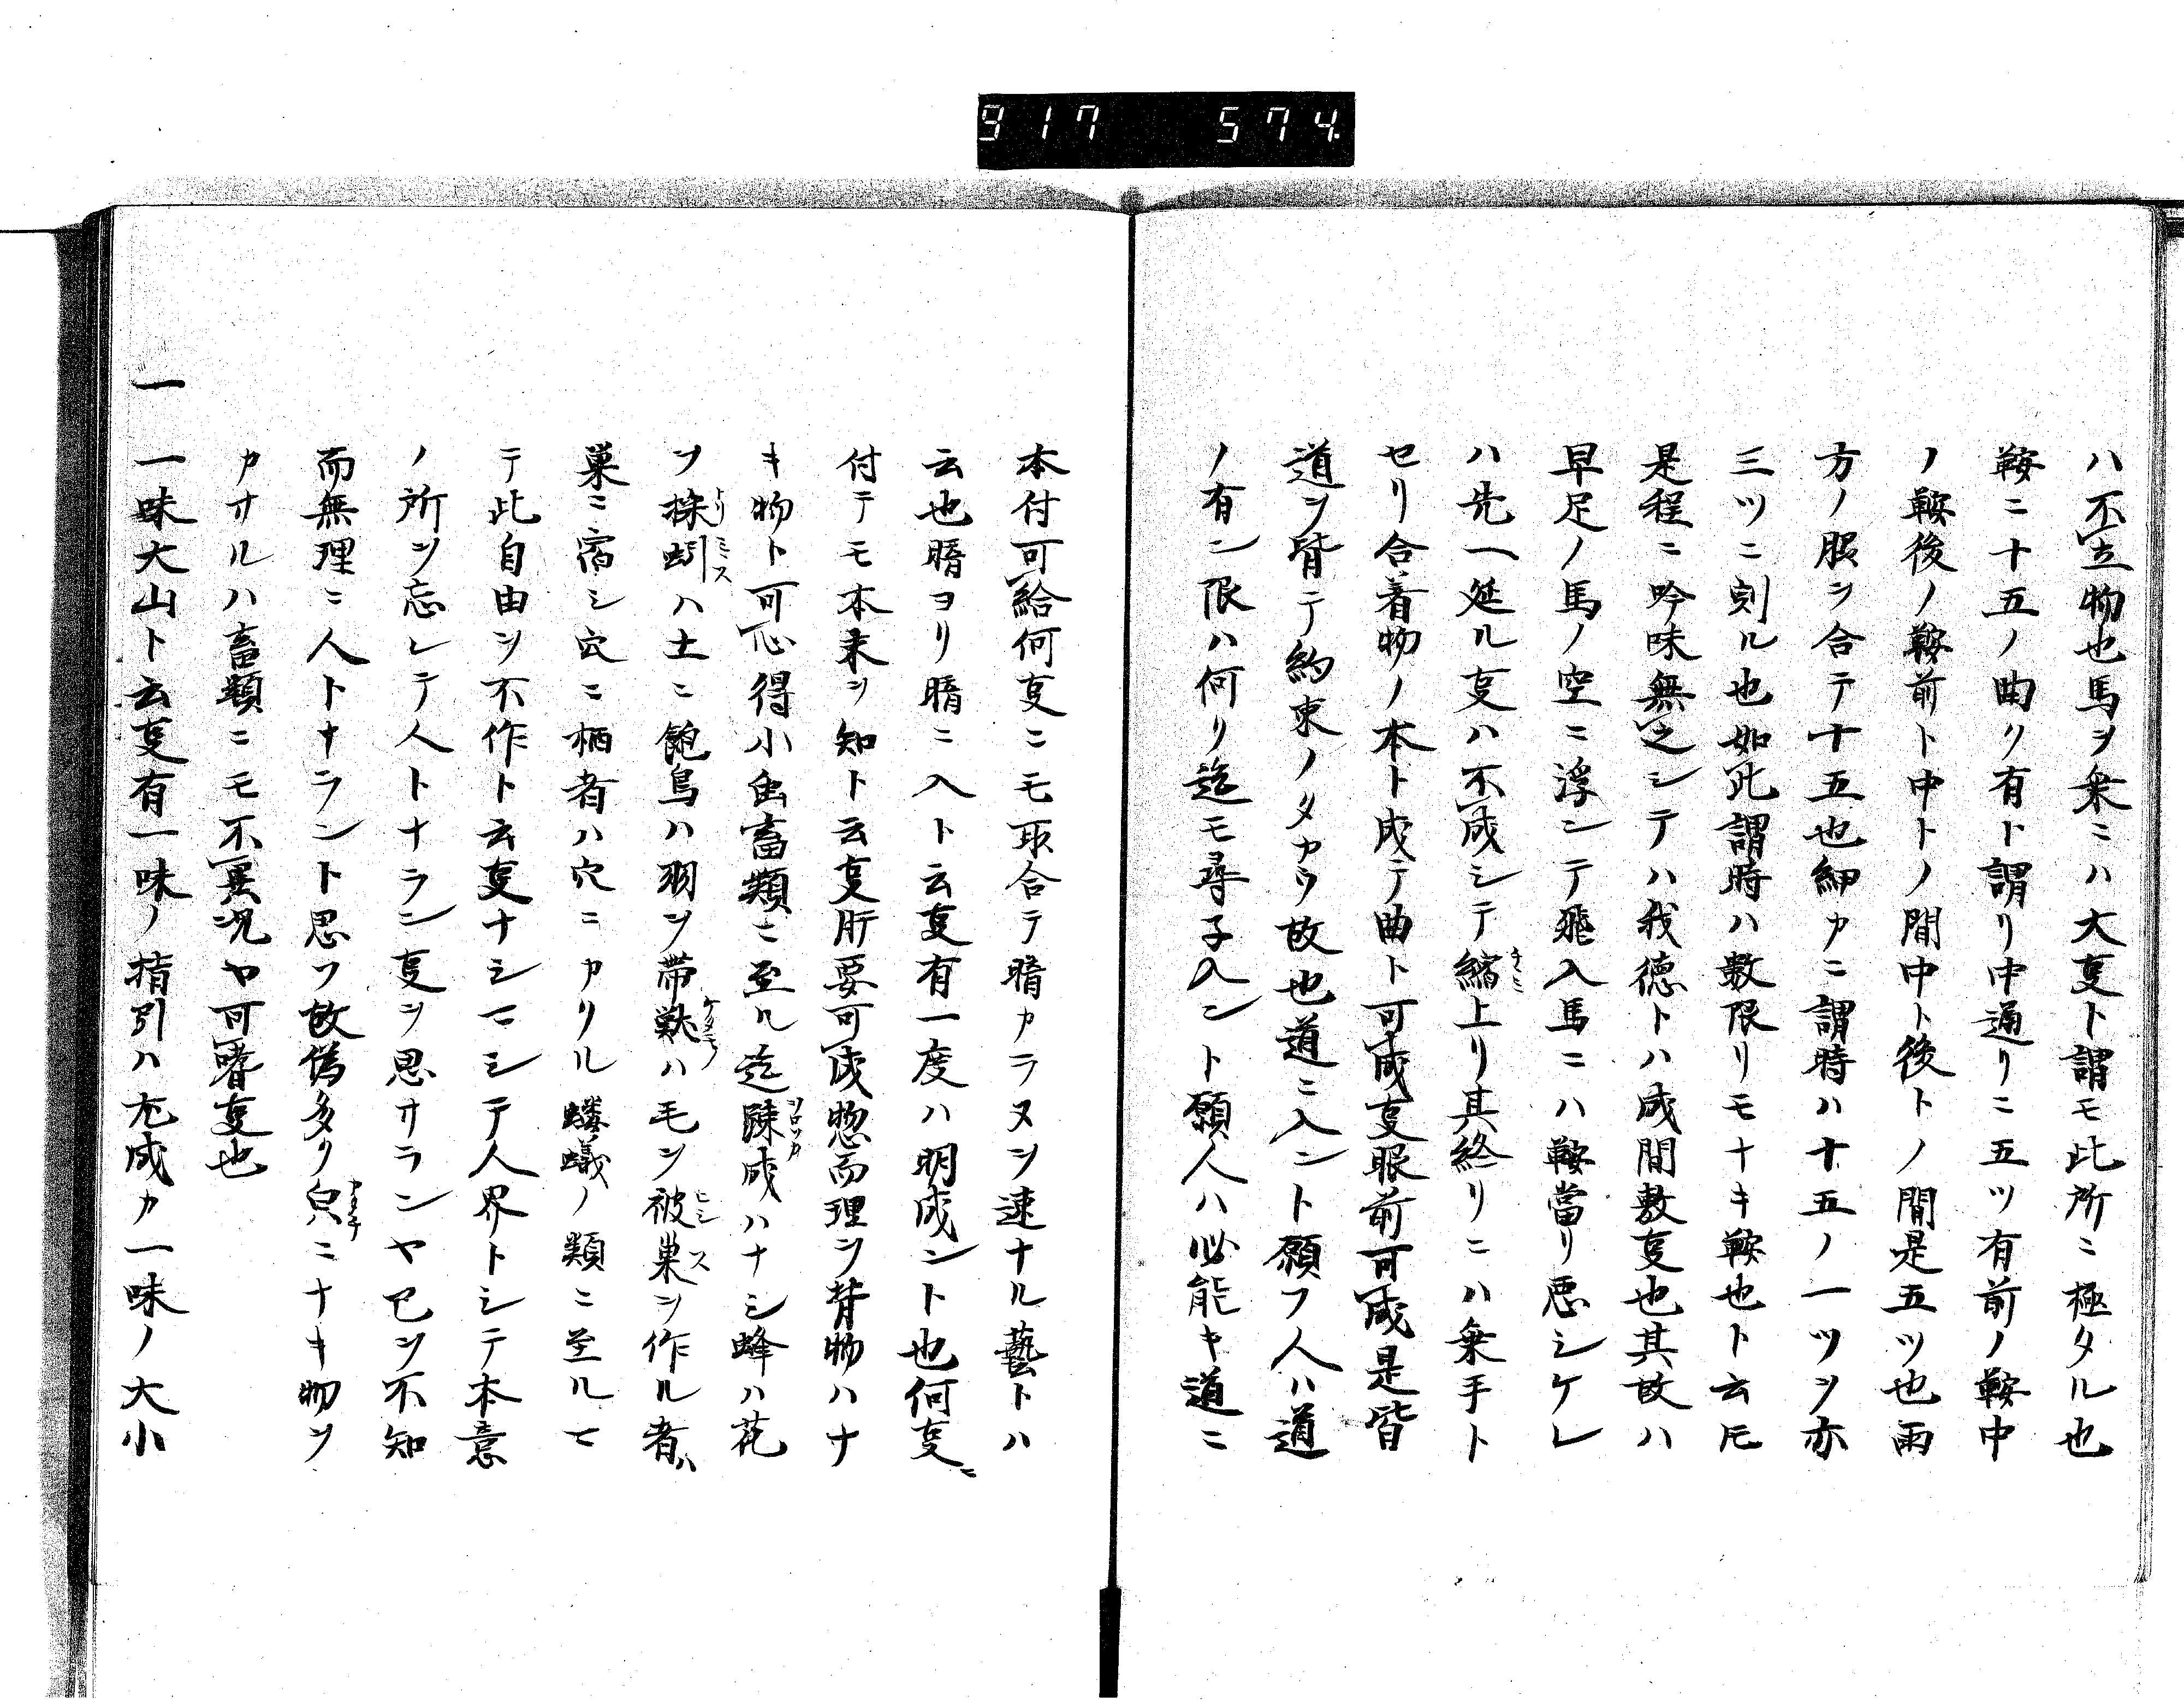 917 574.
ハ不立物也馬ヲ乗ニハ大叓ト謂モ此所ニ極タル也
鞍ニ十五ノ曲リ有ト謂リ中通リニ五ツ有前ノ鞍中
ノ鞍後ノ鞍前ト中トノ間中ト後トノ間是五ツ也両
方ノ服ヲ合テ十五也細カニ謂時ハ十五ノ一ツヲ亦
三ツニ刻ル也如此謂時ハ數限リモナキ鞍也ト云圧
是程ニ吟味無之シテハ我徳トハ成間敷叓也其故ハ
早足ノ馬ノ空ニ浮ンテ飛入馬ニハ鞍當リ悪シケレ
ハ先一延ル叓ハ不成シテ縮上リ其終リニハ乗手ト
セリ合着物ノ本ト成テ曲ト可成叓眼前可成是皆
道ヲ背テ約束ノタカウ故也道ニ入ント願フ人ハ道
ノ有ン限ハ何リ迄モ尋子入ント願人ハ必能キ道ニ
本付可給何叓ニモ取合テ暗カラヌヲ速ナル藝トハ
云也暗ヨリ暗ニ入ト云叓有一度ハ明成ント也何叓ニ
付テモ本末ヲ知ト云叓肝要可成惣而理ヲ背物ハナ
キ物ト可心得小虫畜類ニ至ル迄踈成ハナシ蜂ハ花
ヲ採蚓ハ土ニ飽鳥ハ羽ヲ帯獣ハ毛ヲ被巣ヲ作ル者ハ
巣ニ宿シ穴ニ栖者ハ穴ニアリル螻蟻ノ類ニ至ルモ
テ此自由ヲ不作ト云叓ナシマシテ人界トシテ本意
ノ所ヲ忘レテ人トナラン叓ヲ思サランヤ已ヲ不知
而無理ニ人トナラント思フ故偽多リ貞ニナキ物ヲ
カサルハ畜類ニモ不異况ヤ可嗜叓也
一 一味大山ト云叓有一味ノ指引ハ尢成カ一味ノ大小